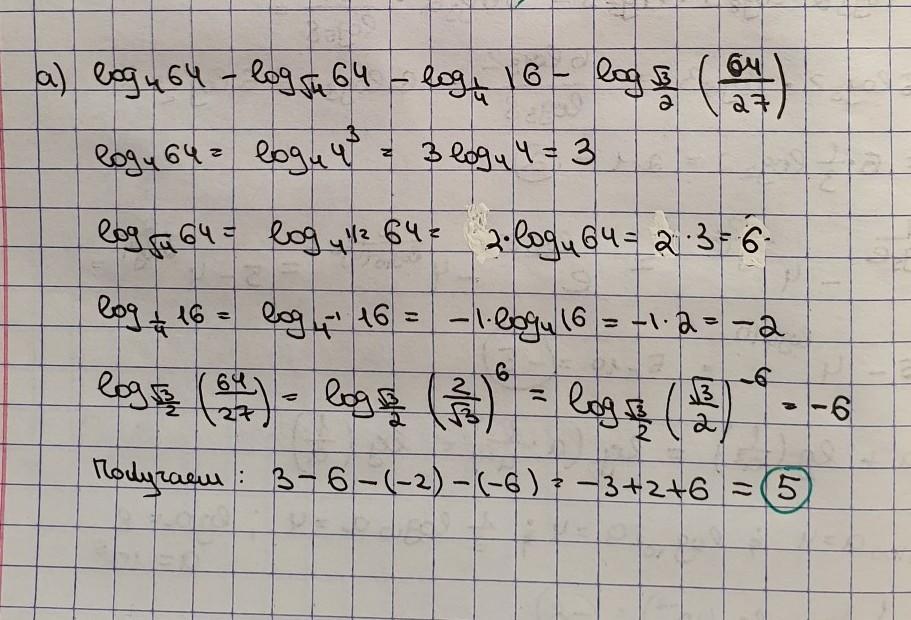 а) log₄64 - log_√4 64 - log_1/4 16 - log_√3/2 (64/27)
log₄64 = log₄4³ = 3log₄4 = 3
log_√4 64 = log_4^1/2 64 = 2·log₄64 = 2·3 = 6
log_1/4 16 = log_4⁻¹ 16 = -1·log₄16 = -1·2 = -2
log_√3/2 (64/27) = log_√3/2 (2/√3)⁶ = log_√3/2 (√3/2)⁻⁶ = -6
Получаем: 3-6-(-2)-(-6) = -3+2+6 = 5